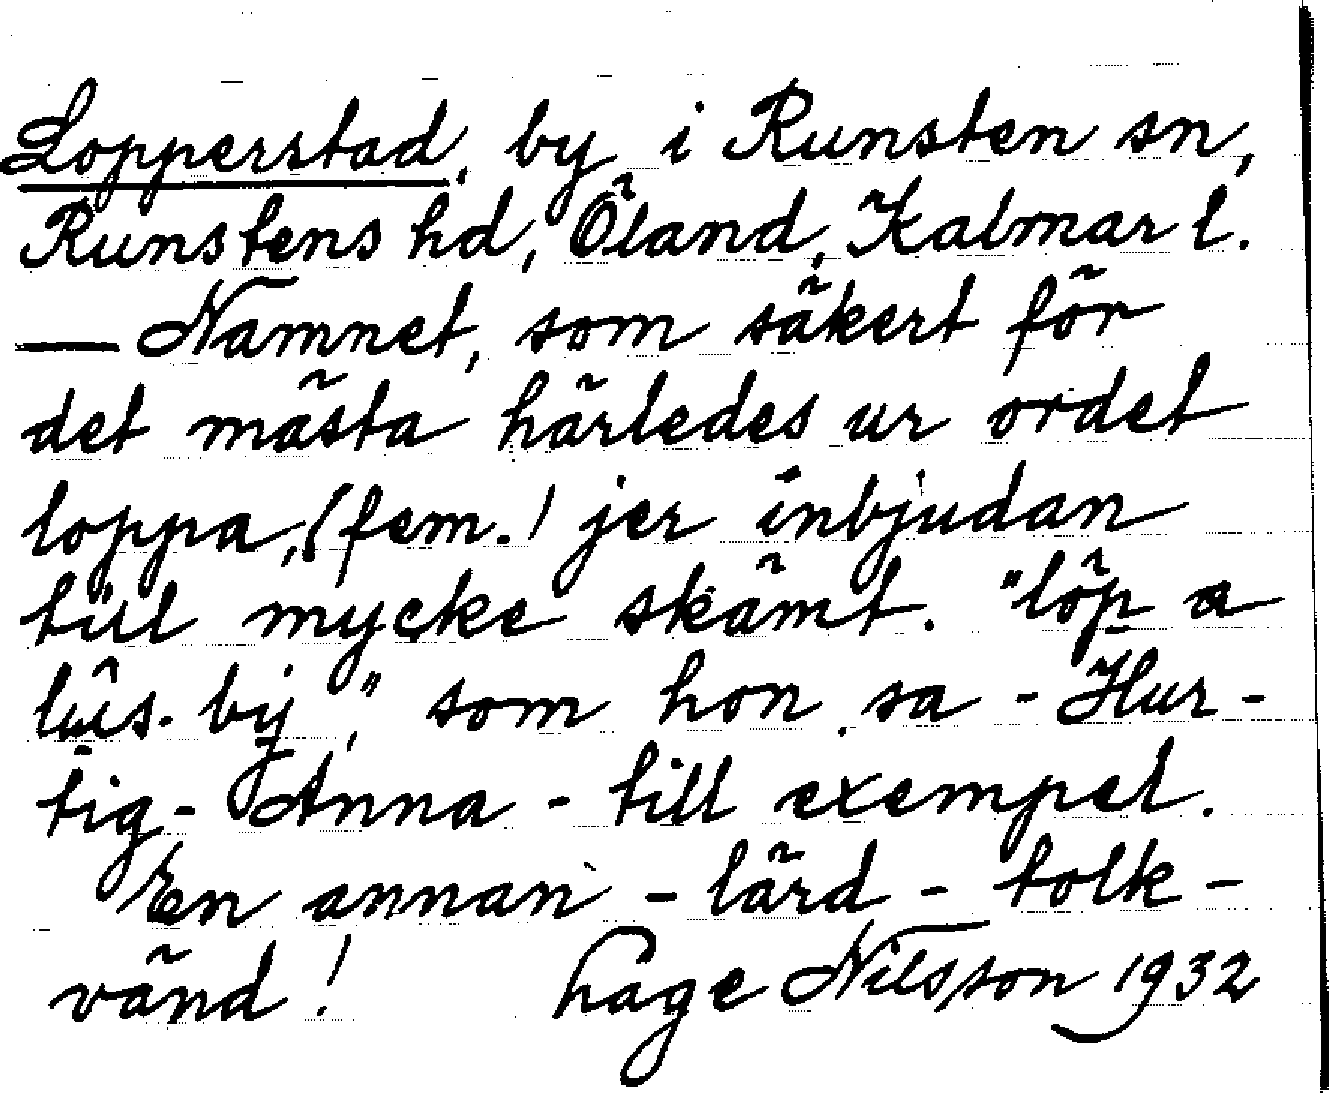 Lopperstad. by i Runsten sn,
Runstens hd, Öland, Kalmar l.
— Namnet, som säkert för
det mästa härledes ur ordet
loppa, (fem.) jer inbjudan
till mycke skämt. "löp a
lûs-by," som hon sa - Hur-
tig-Anna - till exempel.
En annan - lärd - tolk-
vänd! hage Nilsson 1932